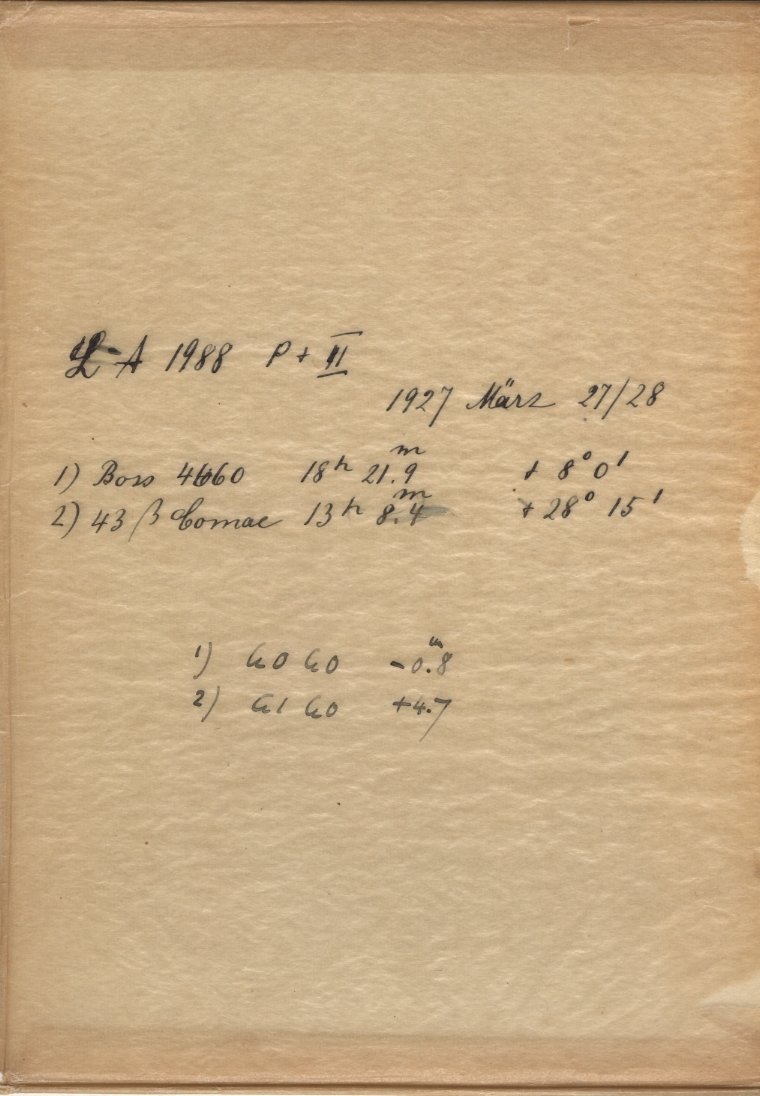 L-A 1988 P + II
1927 März 27/28
1) Boss 4660 18ʰ 21.9ᵐ + 8° 0'
2) 43 β Comae 13ʰ 8.4ᵐ + 28° 15'
1) G0 G0 -0.8ᵐ
2) G1 G0 +4.7